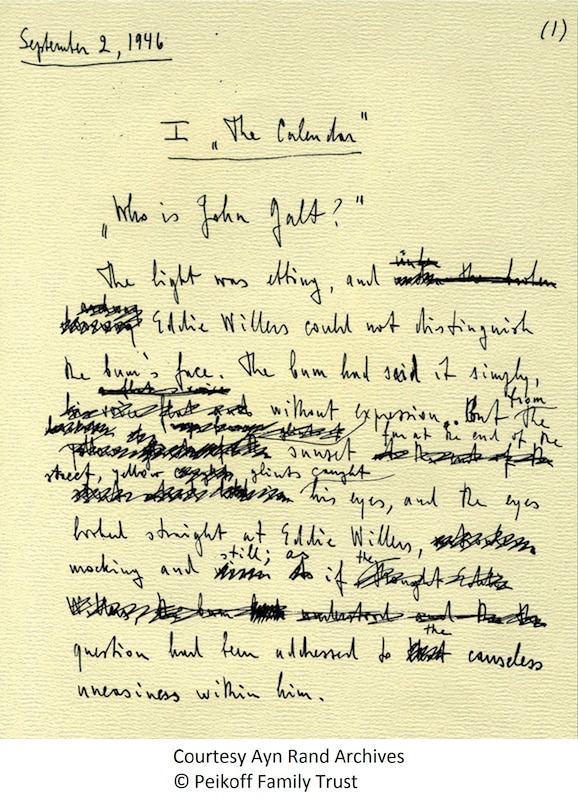 September 2, 1946
(1)
I „The Calendar"
„Who is John Galt?"
The light was ebbing, and
Eddie Willers could not distinguish
the bum's face. The bum had said it simply,
without expression. But from the
sunset far at the end of the
street, yellow glints caught
his eyes, and the eyes
looked straight at Eddie Willers,
mocking and still; as if the
question had been addressed to the causeless
uneasiness within him.
Courtesy Ayn Rand Archives
© Peikoff Family Trust